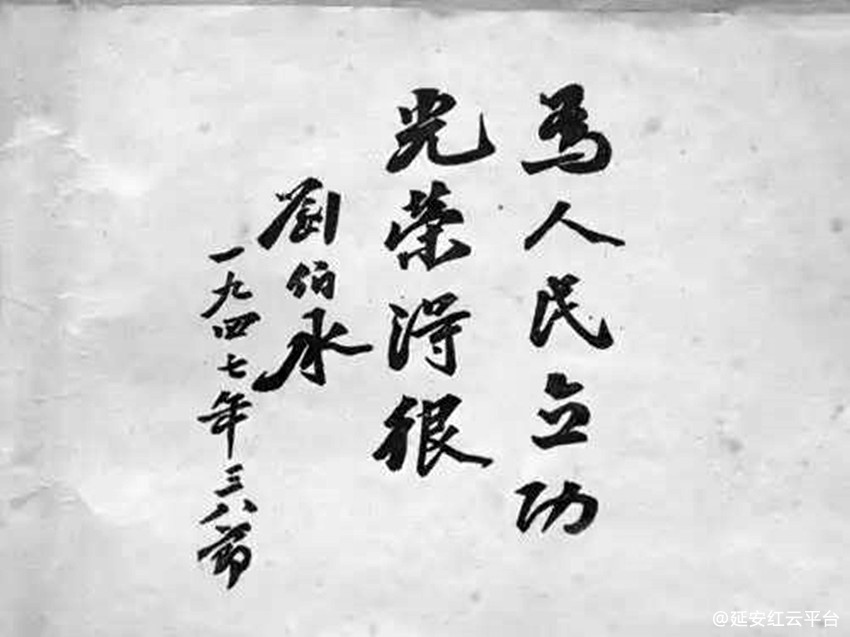 為人民立功
光荣得很
劉伯承
一九四七年三八節
@延安红云平台